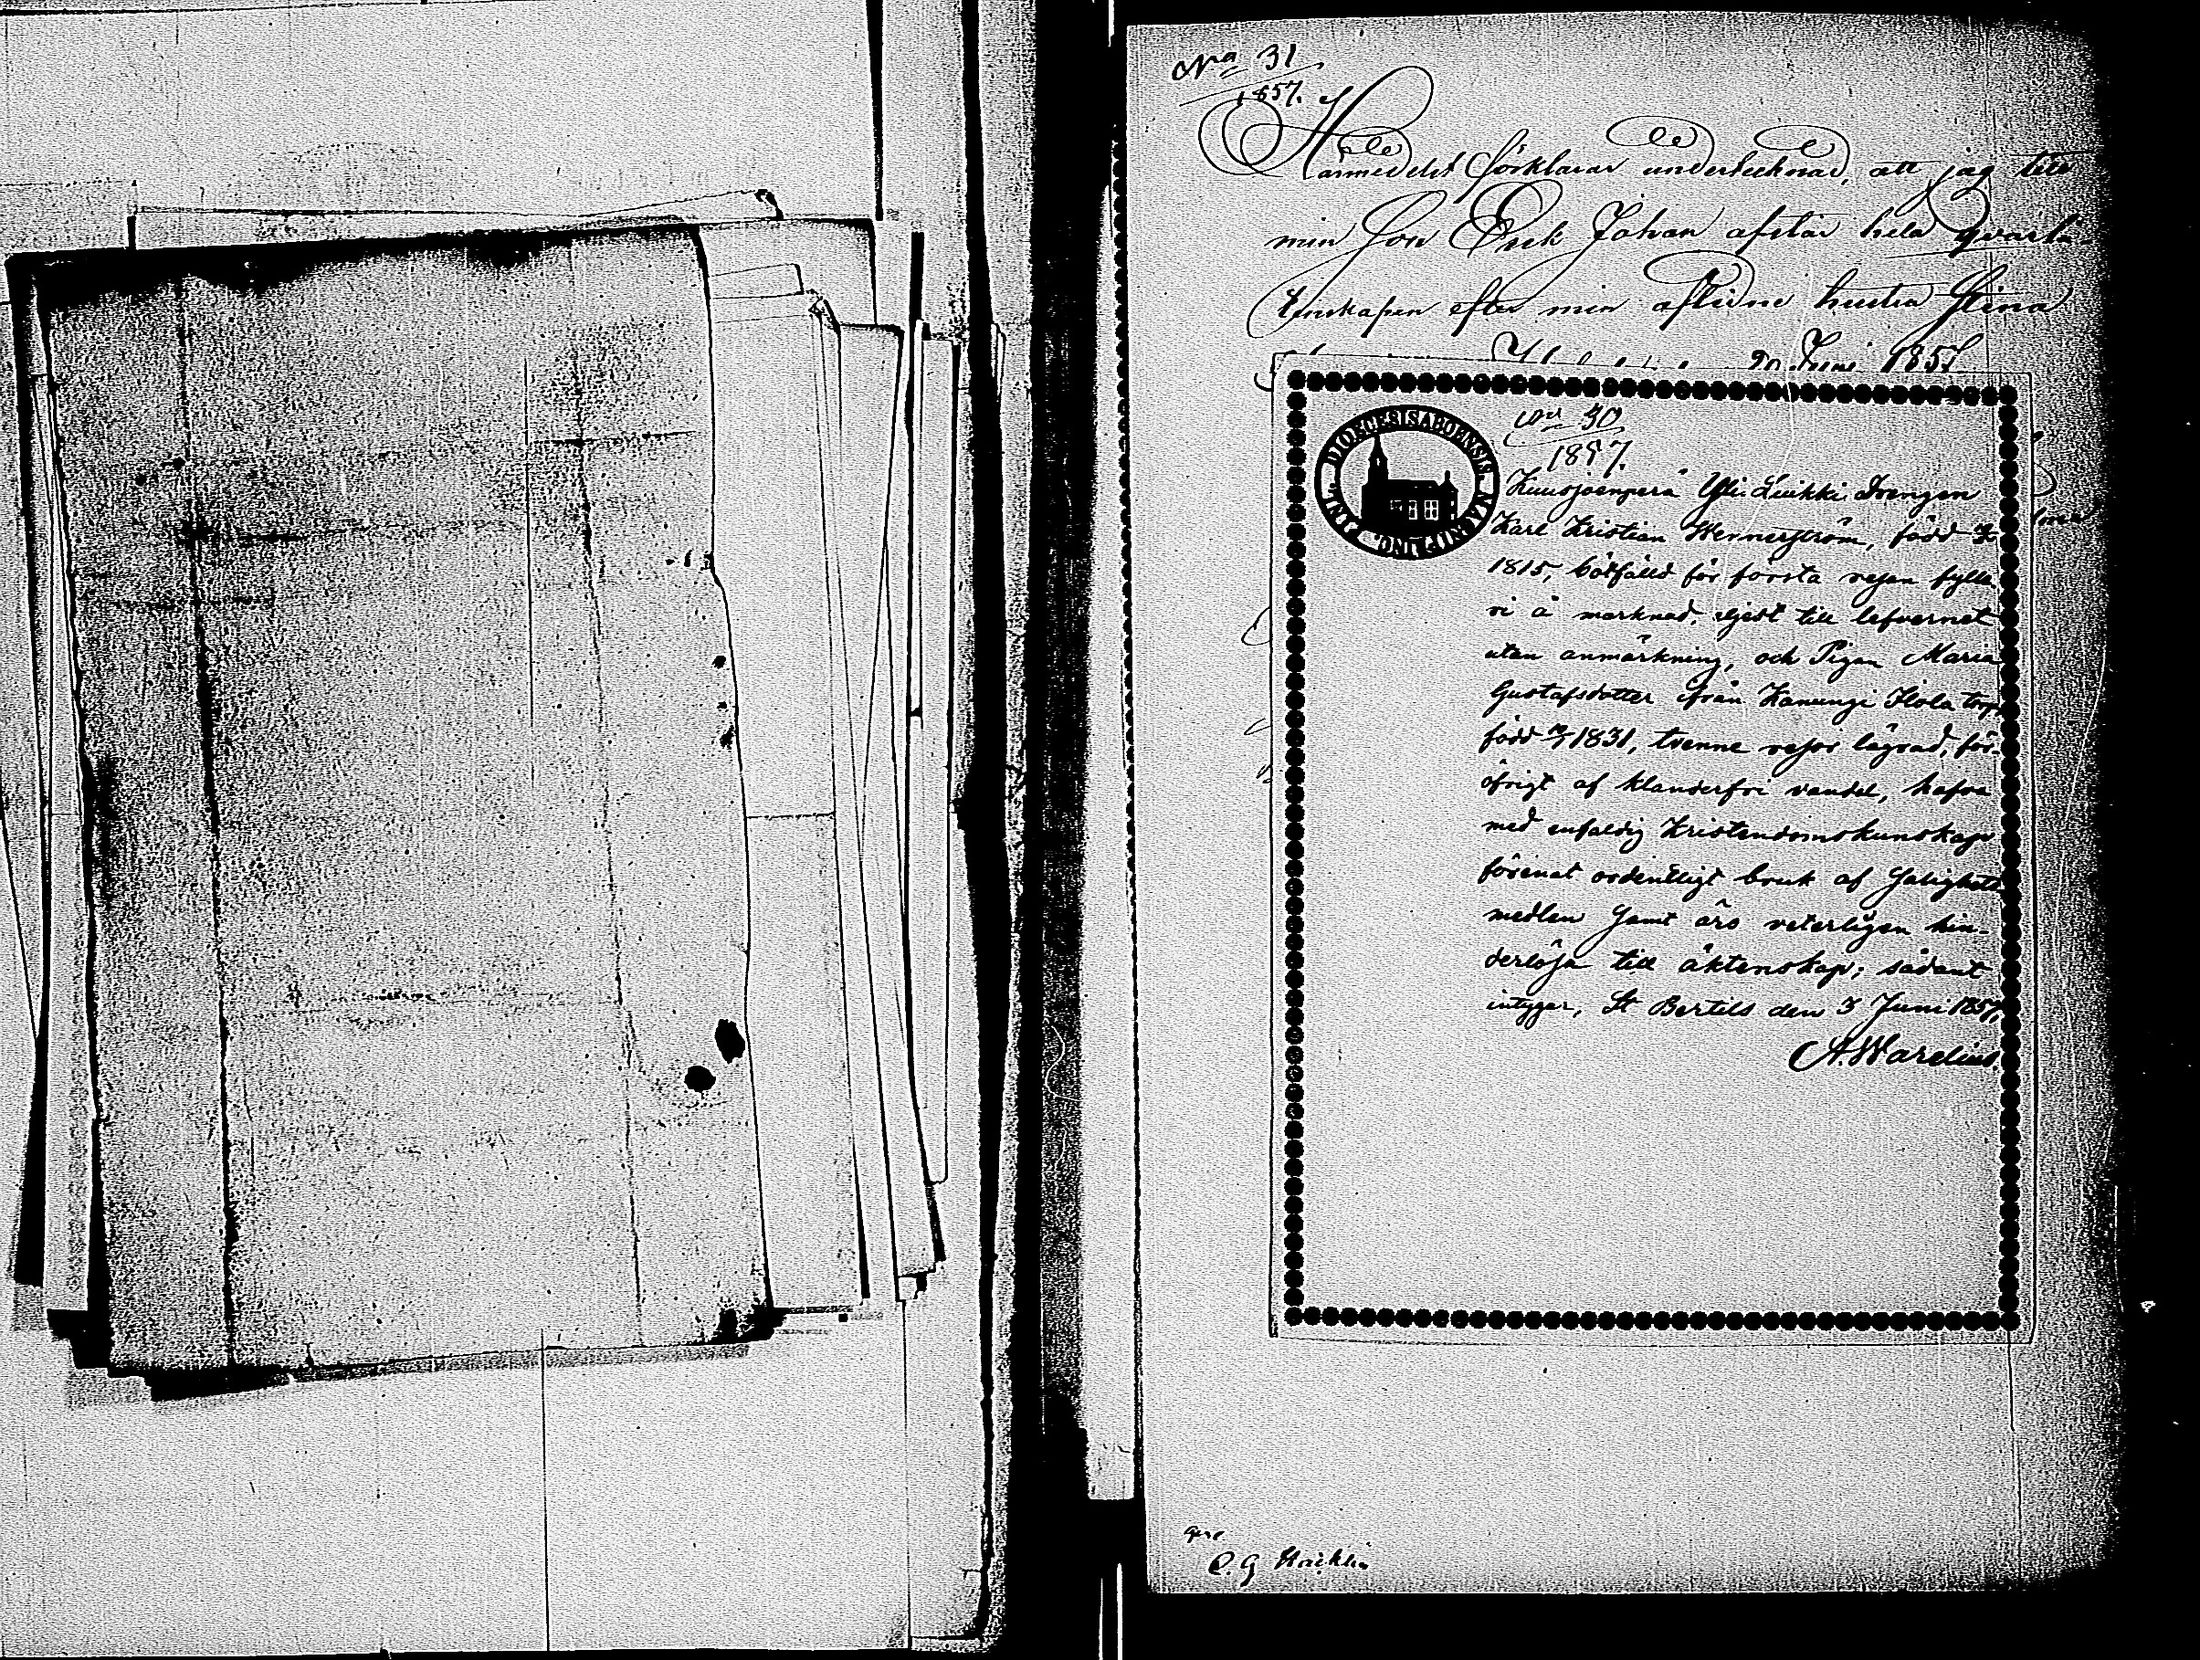 No 31
1857.
Härmedelst förklarar undertecknad, att jag till
min son Erek Johan afstår hela qvarlå-
tenskapen efter min aflidne hustru Stina
20 Juni 1857
DIOECESIS ABOENSIS
No 30
1857.
Kuusjoenperä Yli Luikki Drengen
Karl Kristian Wennerström, född
1815, bötfälld för första resan fylle
ri å marknad, eljest till lefvernet
utan anmärkning, och Pigan Maria
Gustafsdotter ifrån Kanungi Isola torp
född 1831, trenne resor lägrad, för-
öfrigt af klanderfri vandel, hafva
med enfaldig Kristendomskunskap
förenat ordentligt bruk af Salighets
medlen samt äro veterligen hin-
derlösa till äktenskap; sådant
intygar, St Bertils den 3 Juni 1857,
A. Warelius.